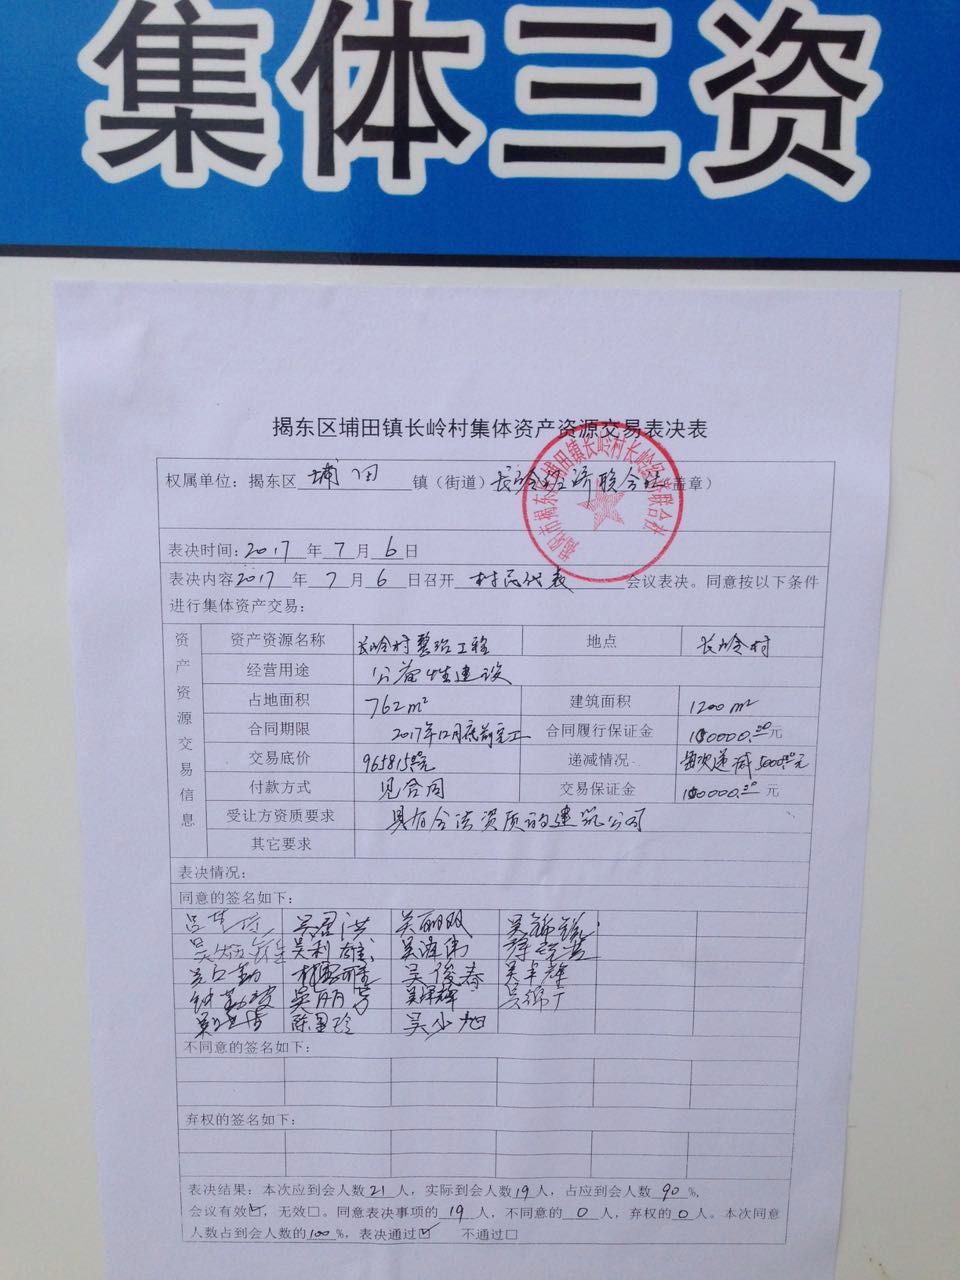 集体三资
揭东区埔田镇长岭村集体资产资源交易表决表
权属单位：揭东区埔田镇（街道）长岭经济联合社（盖章）
揭阳市揭东区埔田镇长岭村长岭经济联合社
表决时间：2017年7月6日
表决内容2017年7月6日召开村民代表会议表决。同意按以下条件
进行集体资产交易：
资产资源交易信息
资产资源名称 长岭村整治工程 地点 长岭村
经营用途 公益性建设
占地面积 762m² 建筑面积 1200m²
合同期限 2017年12月底前完工 合同履行保证金 100000.00元
交易底价 965815元 递减情况 每次递减5000元
付款方式 见合同 交易保证金 100000.00元
受让方资质要求 具有合法资质的建筑公司
其它要求
表决情况：
同意的签名如下：
吴君洪 吴丽明
吴利雄 吴泽伟
吴俊春 吴丰辉
吴丽芳 吴绵丁
吴少旭
不同意的签名如下：
弃权的签名如下：
表决结果：本次应到会人数21人，实际到会人数19人，占应到会人数90%，
会议有效☑，无效□。同意表决事项的19人，不同意的0人，弃权的0人。本次同意
人数占到会人数的100%，表决通过☑ 不通过□